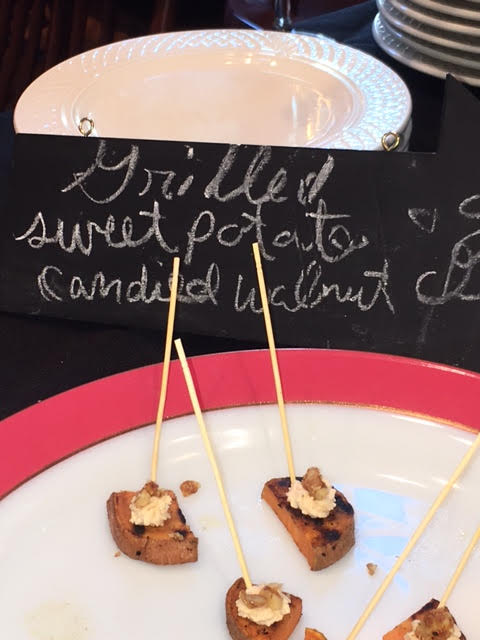 Grilled
sweet potato
candied wallnut